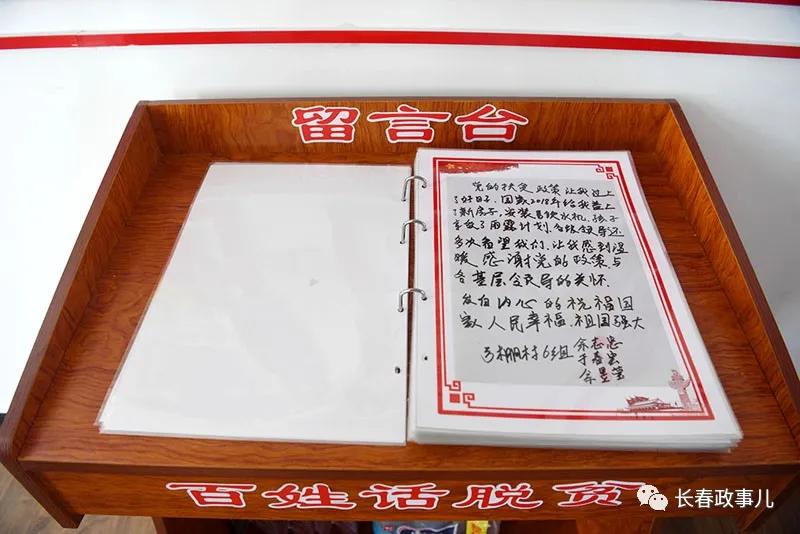 留言台
党的扶贫政策让我过上
了好日子.国家2018年给我盖上
了新房子,安装自饮水机.孩子
享受了雨露计划.各级领导还
多次看望我们.让我感到温
暖感谢党的政策与
各基层领导的关怀.
发自内心的祝福国
家人民幸福.祖国强大
棚村6组
于春
百姓话脱贫
长春政事儿